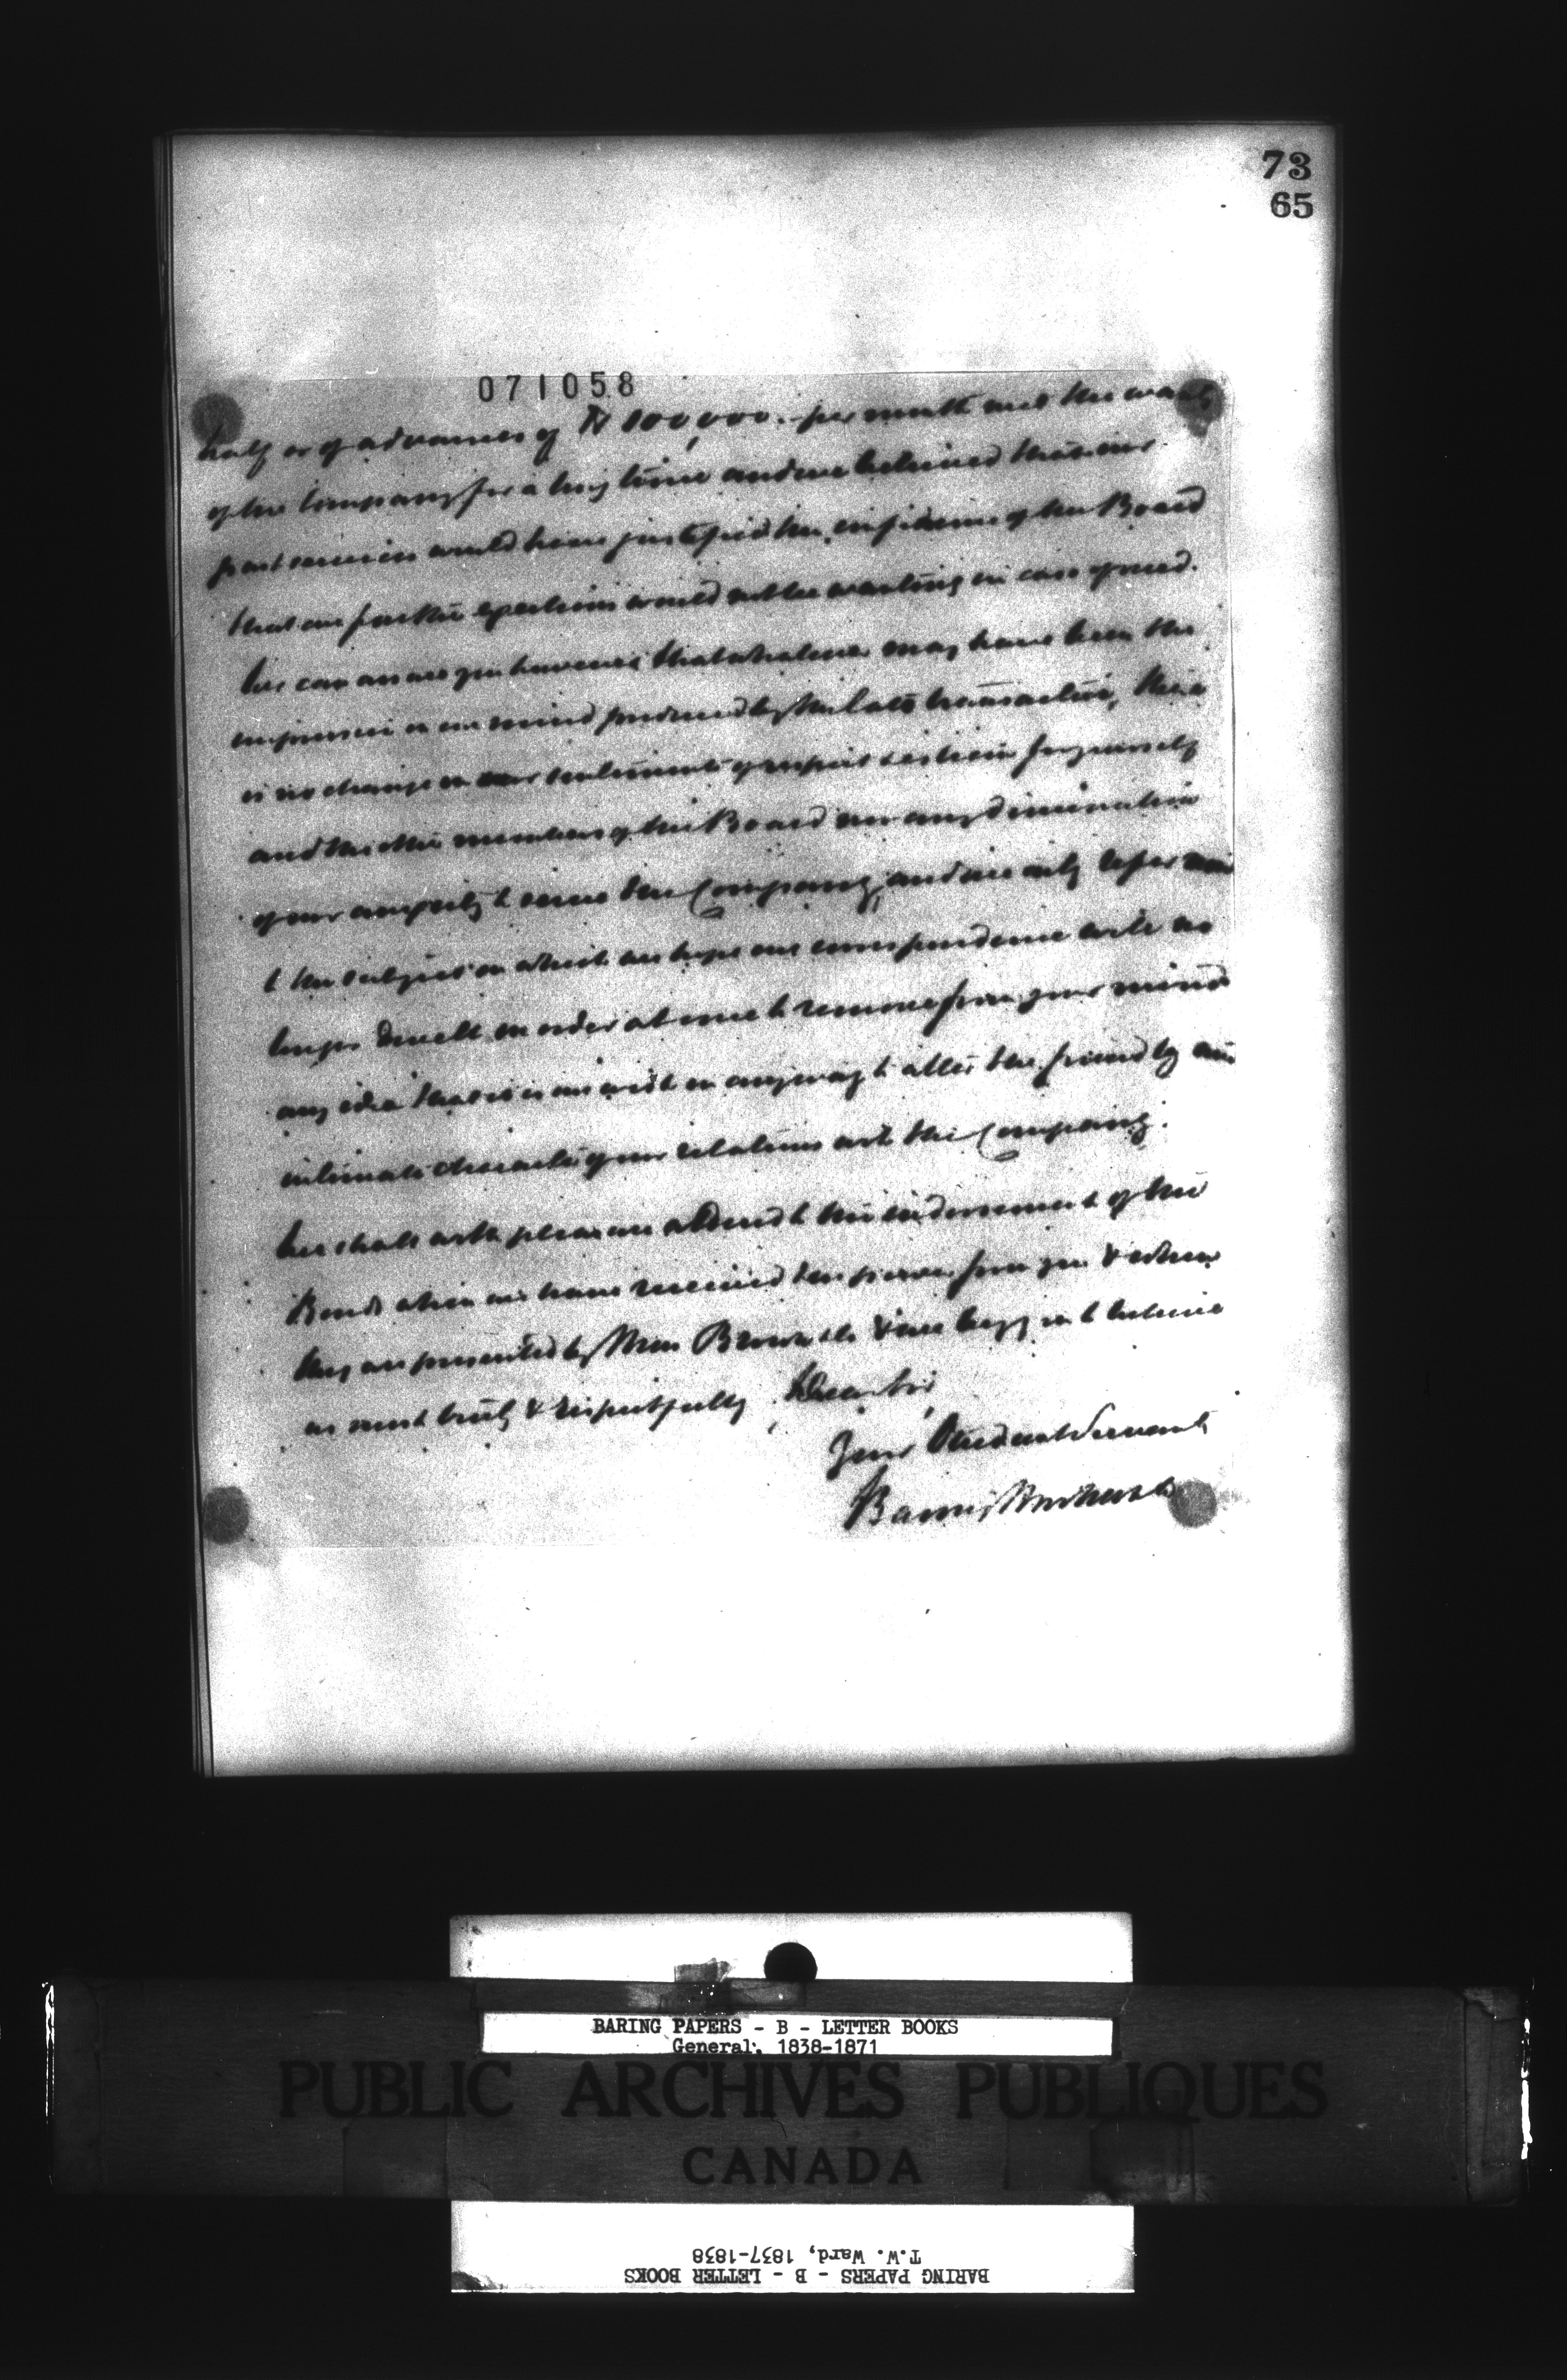 73
65
071058
half or of advances of $100,000. per month met the wants
of the Company for a long time and we believed that our
past services would have justified the confidence of the Board
that our further exertions would not be wanting in case of need.
We can assure you however that whatever may have been the
impression on our mind produced by the late transaction, there
is no change in our sentiments of respect & esteem for yourself
and the other members of the Board nor any diminution
of our anxiety to serve the Company, and we only refer
to the subject on which we hope our correspondence will no
longer dwell in order at once to remove from your mind
any idea that it is our wish in any way to alter the friendly and
intimate character of our relations with the Company.
We shall with pleasure attend to the endorsement of the
Bonds when we have received the power from you & when
they are presented by Messrs Brown & Co & we beg you to believe
us most truly & respectfully, Dear Sir,
Your Obedient Servants
Baring Brothers & Co
BARING PAPERS - B - LETTER BOOKS
General, 1838-1871
PUBLIC ARCHIVES PUBLIQUES
CANADA
T.W. Ward, 1837-1838
BARING PAPERS - B - LETTER BOOKS